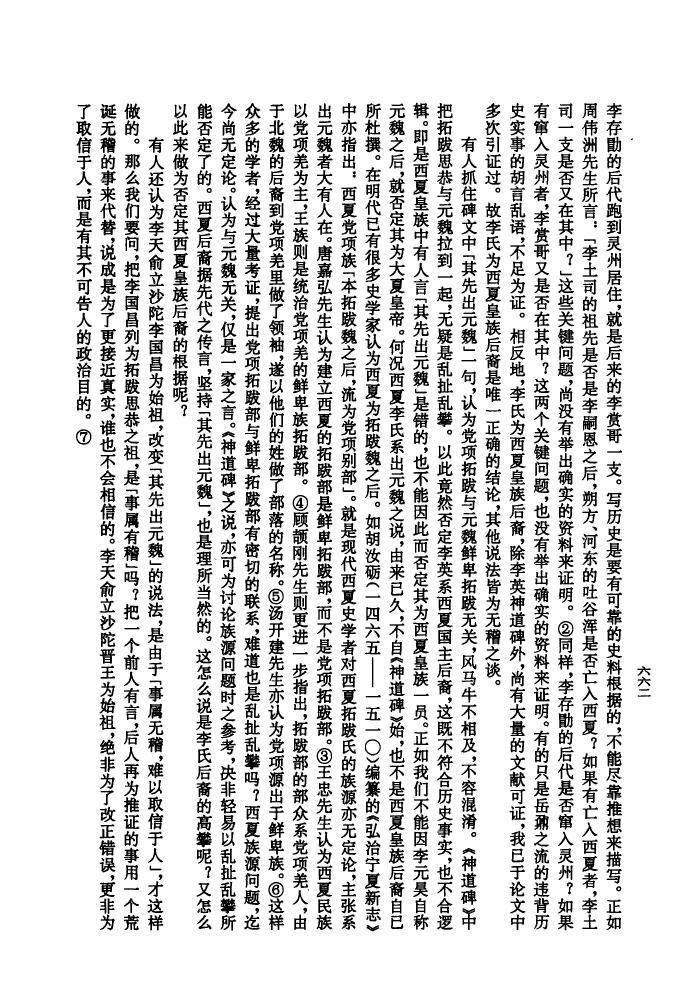 六六二
李存勖的后代跑到灵州居住，就是后来的李赏哥一支。写历史是要有可靠的史料根据的，不能尽靠推想来描写。正如
周伟洲先生所言：「李土司的祖先是否是李嗣恩之后，朔方、河东的吐谷浑是否亡入西夏？如果有亡入西夏者，李土
司一支是否又在其中？」这些关键问题，尚没有举出确实的资料来证明。②同样，李存勖的后代是否窜入灵州？如果
有窜入灵州者，李赏哥又是否在其中？这两个关键问题，也没有举出确实的资料来证明。有的只是岳鼐之流的违背历
史实事的胡言乱语，不足为证。相反地，李氏为西夏皇族后裔，除李英神道碑外，尚有大量的文献可证，我已于论文中
多次引证过。故李氏为西夏皇族后裔是唯一正确的结论，其他说法皆为无稽之谈。
有人抓住碑文中「其先出元魏」一句，认为党项拓跋与元魏鲜卑拓跋无关，风马牛不相及，不容混淆。《神道碑》中
把拓跋思恭与元魏拉到一起，无疑是乱扯乱攀。以此竟然否定李英系西夏国主后裔，这既不符合历史事实，也不合逻
辑。即是西夏皇族中有人言「其先出元魏」是错的，也不能因此而否定其为西夏皇族一员。正如我们不能因李元昊自称
元魏之后，就否定其为大夏皇帝。何况西夏李氏系出元魏之说，由来已久，不自《神道碑》始，也不是西夏皇族后裔自己
所杜撰。在明代已有很多史学家认为西夏为拓跋魏之后。如胡汝砺（一四六五——一五一〇）编纂的《弘治宁夏新志》
中亦指出：西夏党项族「本拓跋魏之后，流为党项别部」。就是现代西夏史学者对西夏拓跋氏的族源亦无定论，主张系
出元魏者大有人在。唐嘉弘先生认为建立西夏的拓跋部是鲜卑拓跋部，而不是党项拓跋部。③王忠先生认为西夏民族
以党项羌为主，王族则是统治党项羌的鲜卑族拓跋部。④顾颉刚先生则更进一步指出，拓跋部的部众系党项羌人，由
于北魏的后裔到党项羌里做了领袖，遂以他们的姓做了部落的名称。⑤汤开建先生亦认为党项源出于鲜卑族。⑥这样
众多的学者，经过大量考证，提出党项拓跋部与鲜卑拓跋部有密切的联系，难道也是乱扯乱攀吗？西夏族源问题，迄
今尚无定论。认为与元魏无关，仅是一家之言。《神道碑》之说，亦可为讨论族源问题时之参考，决非轻易以乱扯乱攀所
能否定了的。西夏后裔据先代之传言，坚持「其先出元魏」，也是理所当然的。这怎么说是李氏后裔的高攀呢？又怎么
以此来做为否定其西夏皇族后裔的根据呢？
有人还认为李天俞立沙陀李国昌为始祖，改变「其先出元魏」的说法，是由于「事属无稽，难以取信于人」，才这样
做的。那么我们要问，把李国昌列为拓跋思恭之祖，是「事属有稽」吗？把一个前人有言，后人再为推证的事用一个荒
诞无稽的事来代替，说成是为了更接近真实，谁也不会相信的。李天俞立沙陀晋王为始祖，绝非为了改正错误，更非为
了取信于人，而是有其不可告人的政治目的。⑦